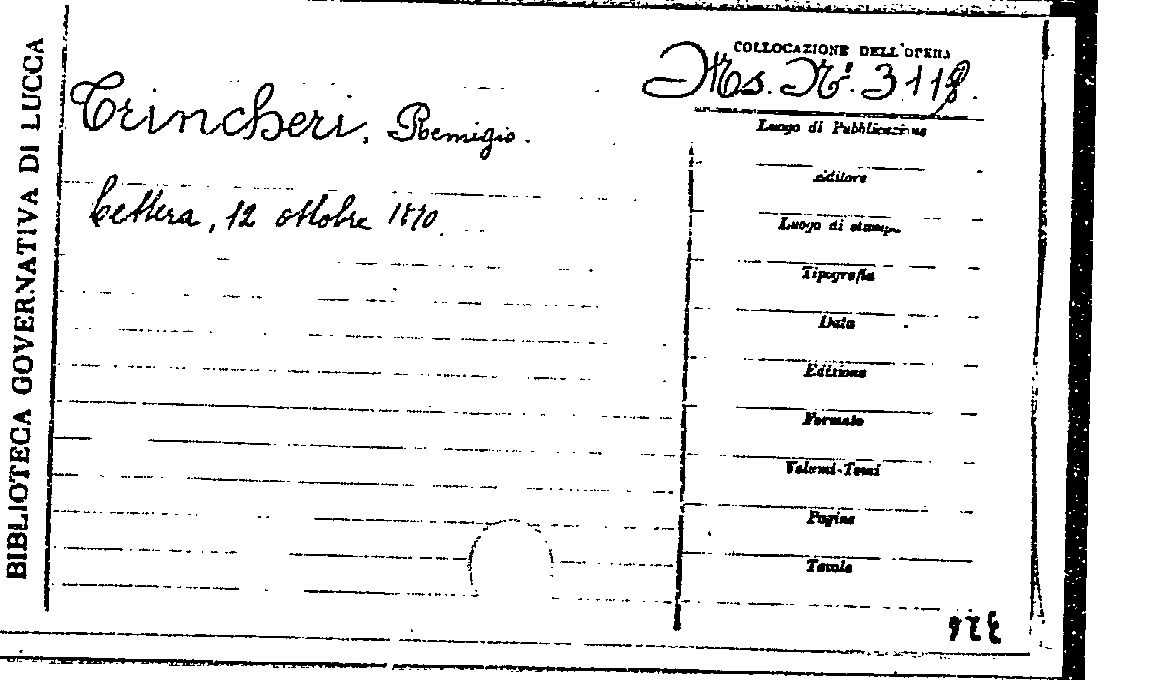 BIBLIOTECA GOVERNATIVA DI LUCCA
COLLOCAZIONE DELL'OPERA
Ms. N.º 3118.
Trincheri, Remigio.
Lettera, 12 ottobre 1870.
Luogo di Pubblicazione
Editore
Luogo di stampa
Tipografia
Data
Edizione
Formato
Volumi-Tomi
Pagine
Tavole